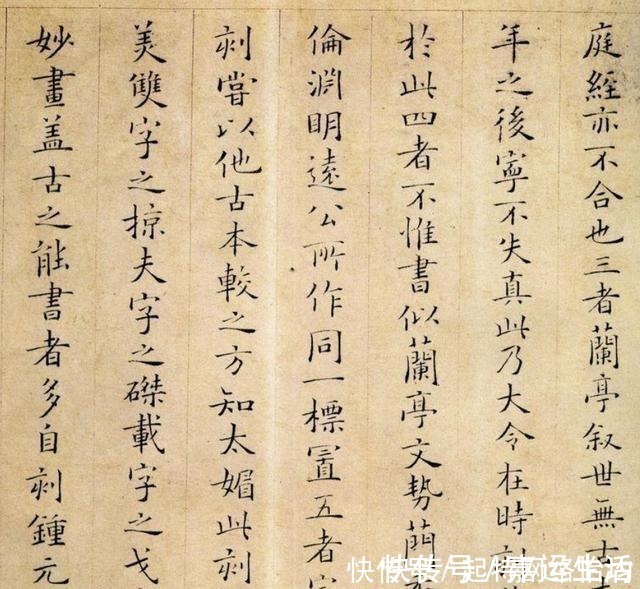 庭經亦不合也三者蘭亭叙世無古
年之後寧不失真此乃大令在時
於此四者不惟書似蘭亭文勢蕳
倫淵明遠公所作同一標置五者
刻嘗以他古本較之方知太媚此刻
美雙字之掠夫字之磔載字之戈
妙畫盖古之能書者多自刻鍾元